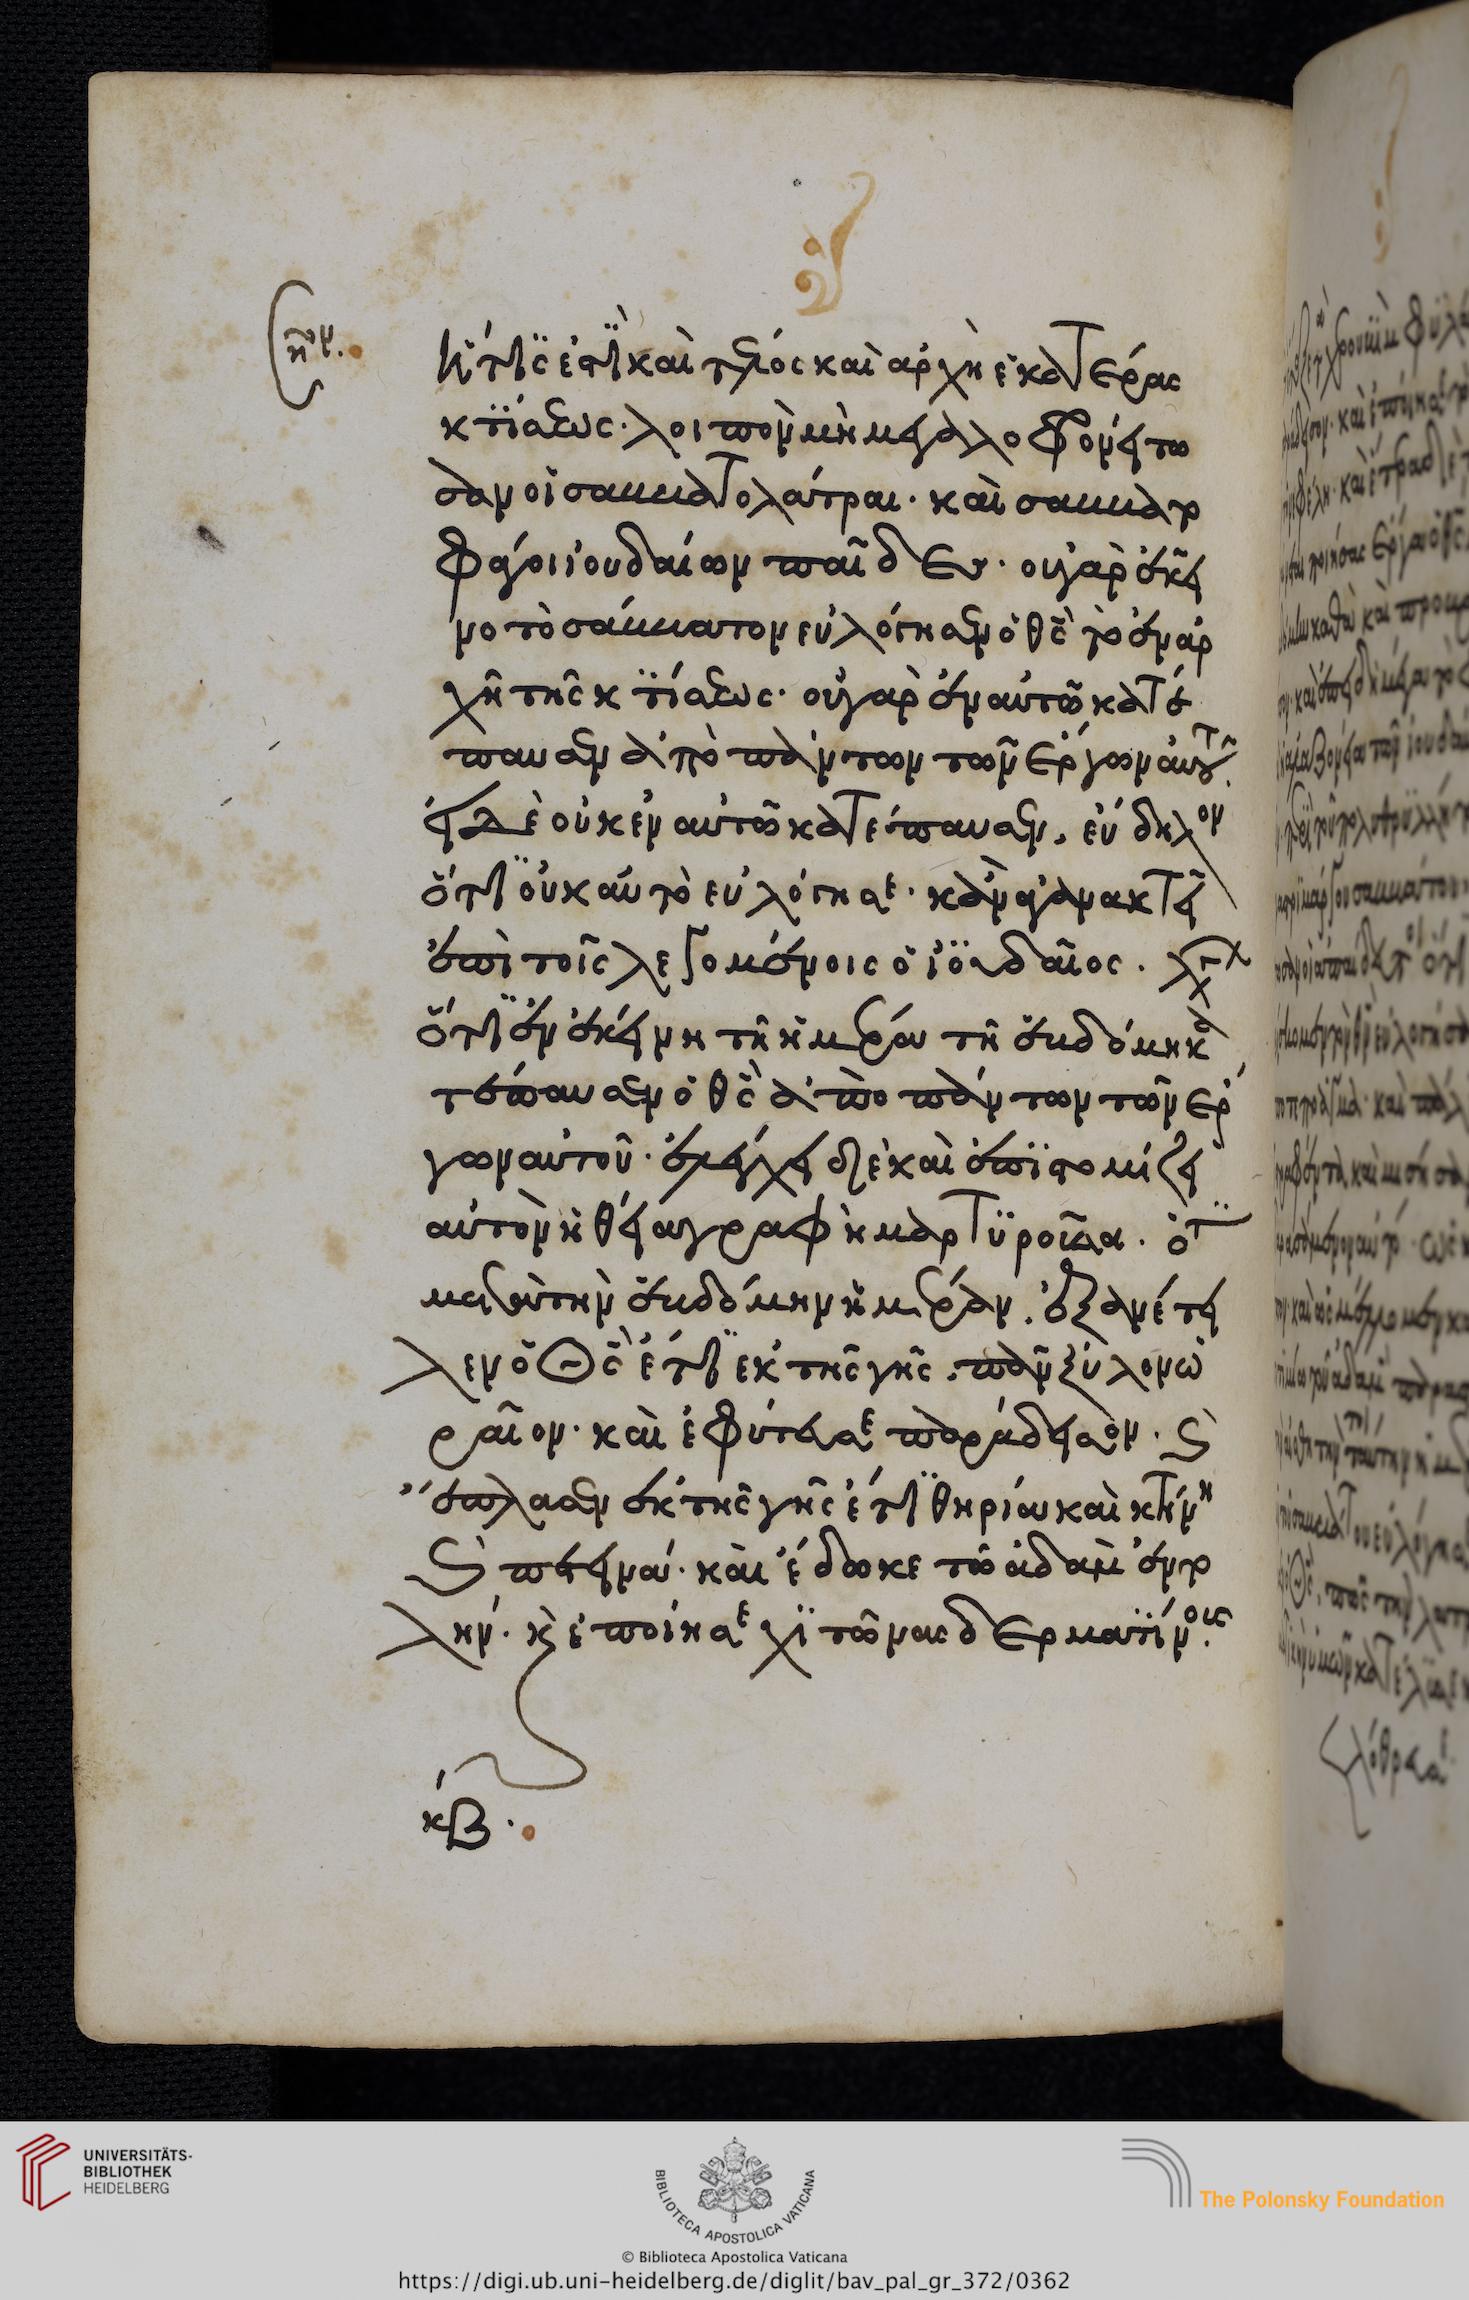 ἥτις ἐστὶ καὶ τέλος καὶ ἀρχὴ ἑκατέρας
κτίσεως· λοιπὸν μὴ μεγαλοφρονείτω
σαν οἱ σαββατολάτραι· καὶ σαββατο
φάγοι ἰουδαίων παῖδες· οὐ γὰρ ἐκεῖ
νο τὸ σάββατον εὐλόγησεν ὁ θς̅ τὸ ἐν ἀρ
χῆ τῆς κτίσεως· οὐ γὰρ ἐν αὐτῶ κατέ
παυσεν ἀπὸ πάντων τῶν ἔργων αὐτοῦ.
εἰ δὲ οὐκ ἐν αὐτῶ κατέπαυσεν, εὔδηλον
ὅτι οὐκ αὐτὸ εὐλόγησε· κἂν ἀγανακτεῖ
ἐπὶ τοῖς λεγομένοις ὁ ἰουδαῖος.
ὅτι ἐν ἐκείνη τῆ ἡμέρα τῆ ἑβδόμη κα
τέπαυσεν ὁ θς̅ ἀπὸ πάντων τῶν ἔρ
γων αὐτοῦ· ἐλέγχει δὲ καὶ ἐπιστομίζει
αὐτὸν ἡ θεία γραφὴ μαρτυροῦσα. ὅτι
μετὰ τὴν ἑβδόμην ἡμέραν. ἐξανέτει
λεν ὁ Θς̅ ἔτι ἐκ τῆς γῆς. πᾶν ξύλον ὡ
ραῖον· καὶ ἐφύτευσε παράδεισον. καὶ
ἔπλασεν ἐκ τῆς γῆς ἔτι θηρία καὶ κτήνη
καὶ πετεινά· καὶ ἔδωκε τῶ ἀδὰμ ἐντο
λήν. καὶ ἐποίησε χιτῶνας δερματίνοις.
κβ.
UNIVERSITÄTS-
BIBLIOTHEK
HEIDELBERG
BIBLIOTECA APOSTOLICA VATICANA
The Polonsky Foundation
© Biblioteca Apostolica Vaticana
https://digi.ub.uni-heidelberg.de/diglit/bav_pal_gr_372/0362